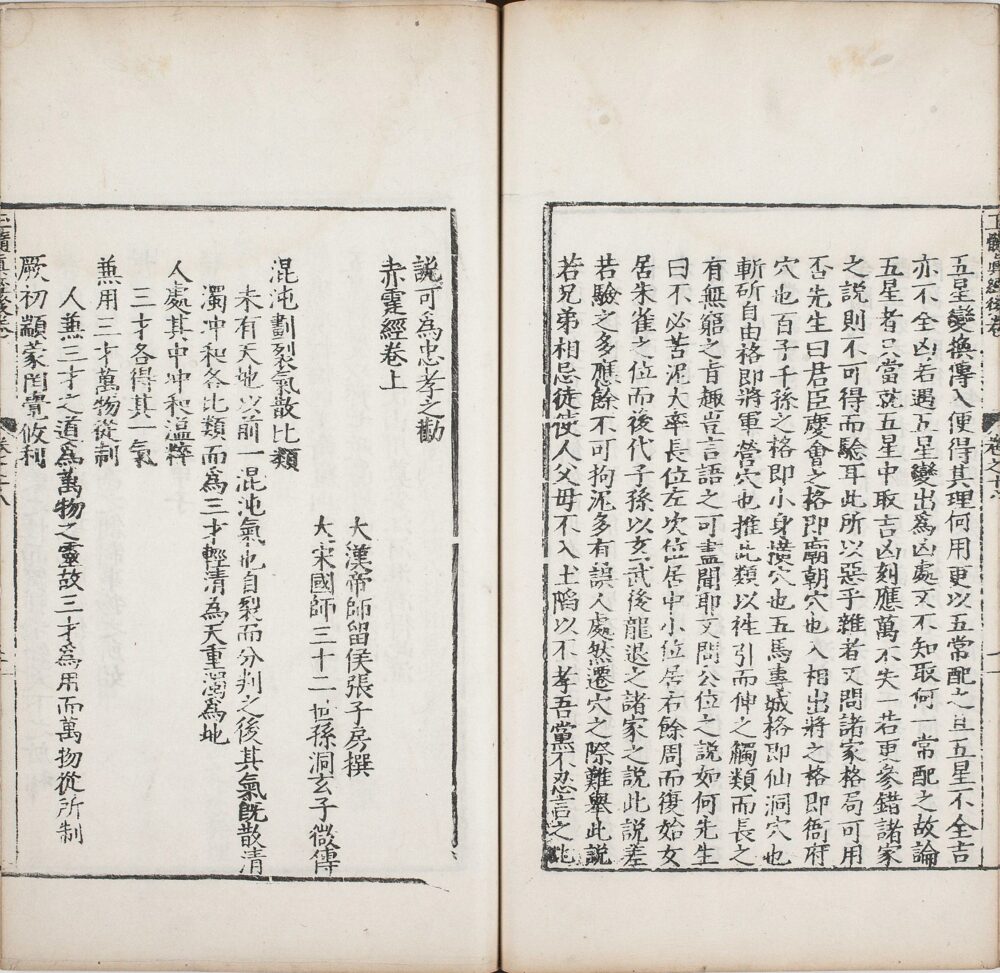 玉髓真經後卷
五星變換傳入便得其理何用更以五常配之且五星不全吉
亦不全凶若遇五星變出為凶處又不知取何一常配之故論
五星者只當就五星中取吉凶刻應萬不失一若更參錯諸家
之說則不可得而驗耳此所以惡乎雜者又問諸家格局可用
否先生曰君臣慶會之格即廟朝穴也入相出將之格即衙府
穴也百子千孫之格即小身攢穴也五馬專城格即仙洞穴也
斬斫自由格即將軍營穴也推此類以徃引而伸之觸類而長之
有無窮之旨趣豈言語之可盡聞耶又問公位之說如何先生
曰不必苦泥大率長位左次位居中小位居右餘周而復始女
居朱雀之位而後代子孫以玄武後龍退之諸家之說此說差
若驗之多應餘不可拘泥多有誤人處然遷穴之際難舉此說
若兄弟相忌徒使人父母不入土陷以不孝吾黨不忍言之此
說可為忠孝之勸
赤霆經卷上
大漢帝師留侯張子房撰
大宋國師三十二世孫洞玄子微傳
混沌劃裂氣散比類
未有天地以前一混沌氣也自裂而分判之後其氣既散清
濁冲和各比類而為三才輕清為天重濁為地
人處其中冲和溫粹
三才各得其一氣
兼用三才萬物從制
人兼三才之道為萬物之靈故三才為用而萬物從所制
厥初顓蒙罔覺攸利